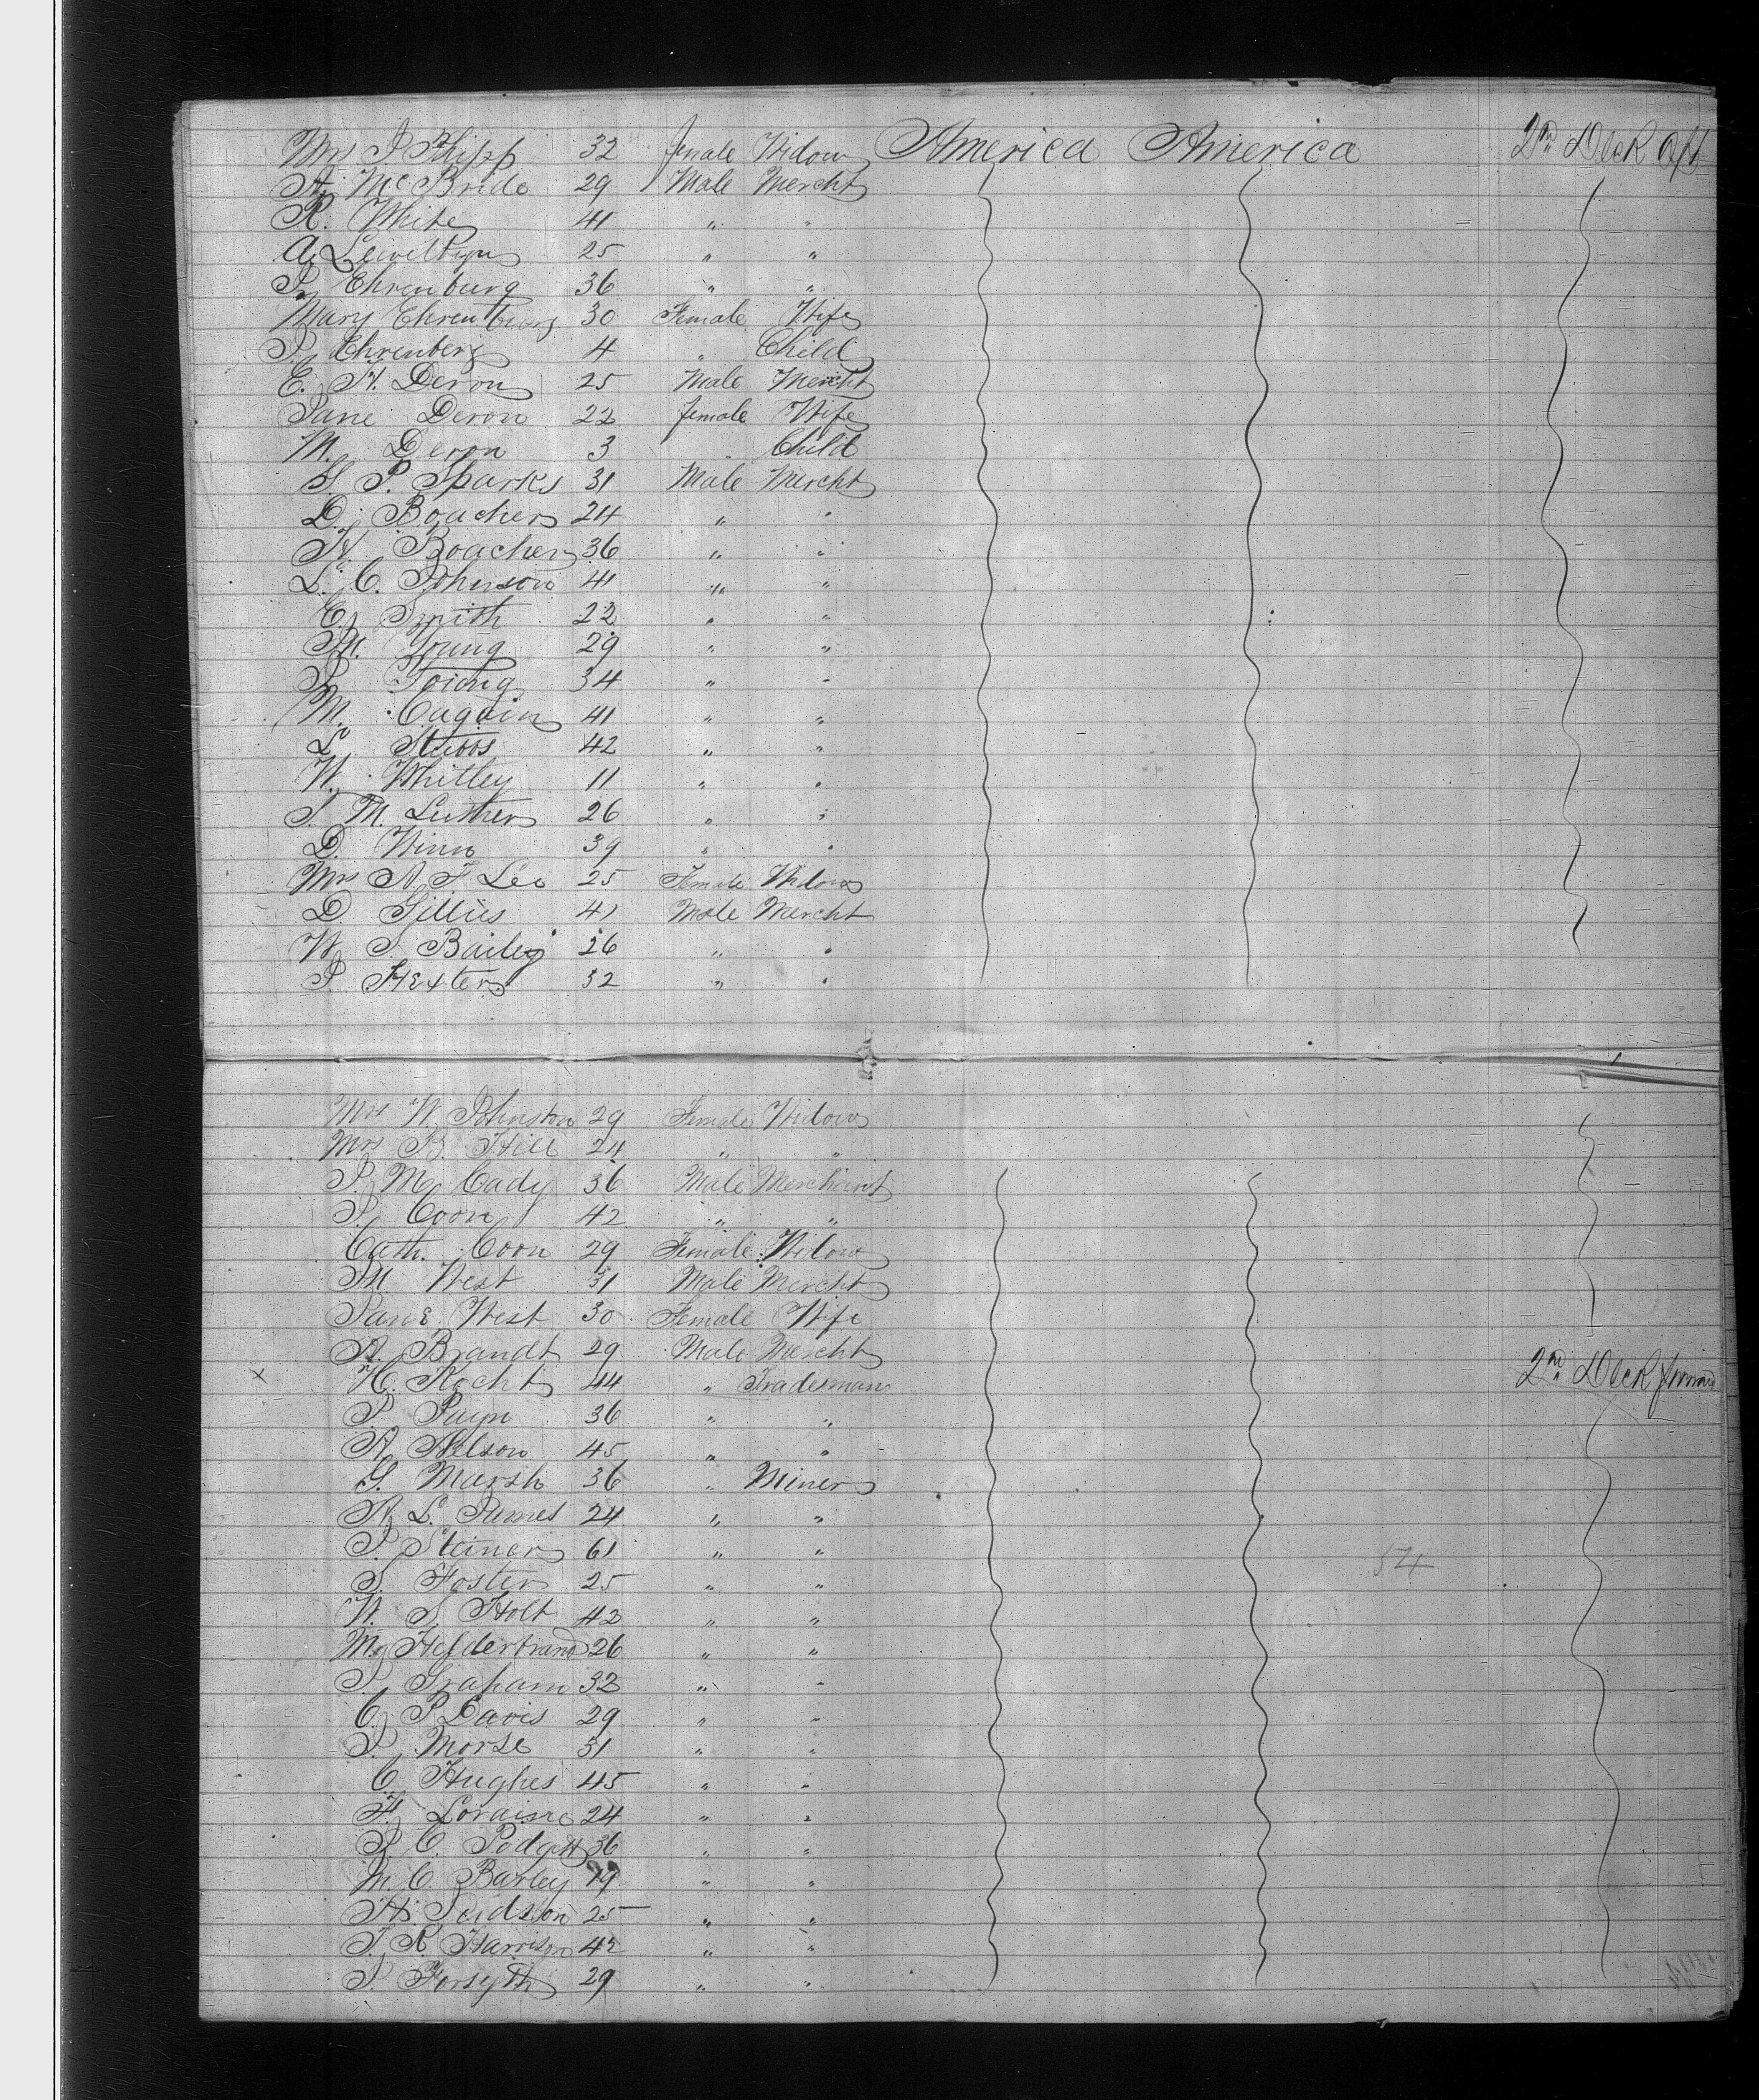 Mrs J Shipp 32 female Widow America America 2nd Deck Aft
A. McBride 29 Male Mercht
R. White 41 " "
A. Lewellyn 25 " "
P. Ehrenburg 36 " "
Mary Ehrenberg 30 Female Wife
P. Ehrenberg 4 " Child
E. H. Deron 25 Male Mercht
Jane Deron 22 female Wife
M. Deron 3 " Child
G P. Sparks 31 Male Mercht
D. Boacher 24 " "
H. Boacher 36 " "
L. C. Johnson 41 " "
E. Smith 22 " "
M. Young 29 " "
J. Young 34 " "
M. Cagain 41 " "
L. Stubbs 42 " "
W. Whitley 11 " "
J. M. Luther 26 " "
D. Winn 39 " "
Mrs A. F Lee 25 Female Widow
D. Gillies 41 Male Mercht
W. J. Bailey 26 " "
J. Hexter 32 " "
Mrs W. Johnston 29 Female Widow
Mrs B. Hill 24 " "
J. M. Cady 36 Male Merchant
J. Coon 42 " "
Cath. Coon 29 Female Widow
M West 31 Male Mercht
Jane West 30 Female Wife
A. Brandt 29 Male Mercht
x H. Kocht 44 " Tradesman 2nd Deck
P. Payn 36 " "
A. Nelson 45 " "
G. Marsh 36 " Miner
A. L. James 24 " "
J. Steiner 61 " "
S. Foster 25 " "
W. S. Holt 42 " " 54
M. 26 " "
J. Graham 32 " "
C. P Davis 29 " "
J. Morse 31 " "
C. Hughes 45 " "
F. 24 " "
J. C. Podgett 36 " "
M. C. Barley 19 " "
H. Judson 25 " "
J. R Harrison 42 " "
J. Forsyth 29 " "